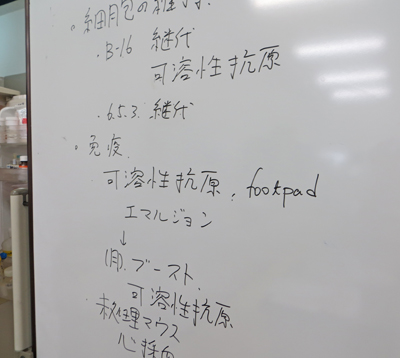 ・細胞の維持.
・B-16 継代
可溶性抗原
・6.5.3. 継代
・免疫.
可溶性抗原, footpad
エマルジョン
↓
ブースト.
可溶性抗原
未処理マウス
心採血